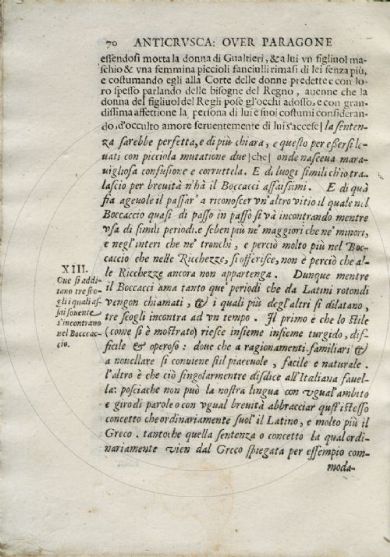 70 ANTICRVSCA: OVER PARAGONE
essendosi morta la donna di Gualtieri, & a lui vn figliuol ma-
schio & vna femmina piccioli fanciulli rimasi di lei senza più,
e costumando egli alla Corte delle donne predette e con lo-
ro spesso parlando delle bisogne del Regno, auenne che la
donna del figliuol del Re gli pose gl'occhi adosso, e con gran-
dissima affettione la persona di lui e suoi costumi consideran-
do, d'occulto amore feruentemente di lui s'accese | la senten-
za sarebbe perfetta, e di più chiara, e questo per eßersi le-
uati con picciola mutatione due | che | onde nasceua mara-
uigliosa confusione e corruttela. E di luogi simili ch'io tra-
lascio per breuità n'hà il Boccacci assaissimi. E di quà
fia ageuole il passar' a riconoscer vn'altro vitio il quale nel
Boccaccio quasi di passo in passo si và incontrando mentre
vsa di simili periodi. e se ben più ne' maggiori che ne' minori,
e negl'interi che ne' tronchi, e perciò molto più nel Boc-
caccio che nelle Ricchezze, si offerisce, non è perciò che al-
le Ricchezze ancora non appartenga. Dunque mentre
il Boccacci ama tanto que' periodi che da Latini rotondi
vengon chiamati, & i quali più degl'altri si dilatano,
tre scogli incontra ad vn tempo. Il primo è che lo stile
(come si è mostrato) riesce insieme insieme turgido, dif-
ficile & operoso: doue che a ragionamenti familiari &
a nouellare si conuiene stil piaceuole, facile e naturale.
l'altro è che ciò singolarmente disdice all'Italiana fauel-
la: posciache non può la nostra lingua con vgual'ambito
e giro di parole o con vgual breuità abbracciar quell'istesso
concetto che ordinariamente suol'il Latino, e molto più il
Greco. tantoche quella sentenza o concetto la qual ordi-
nariamente vien dal Greco spiegata per essempio com-
moda-
XIII.
Oue si addi-
tano tre sco-
gli i quali as-
sai souente
s'incontrano
nel Boccac-
cio.